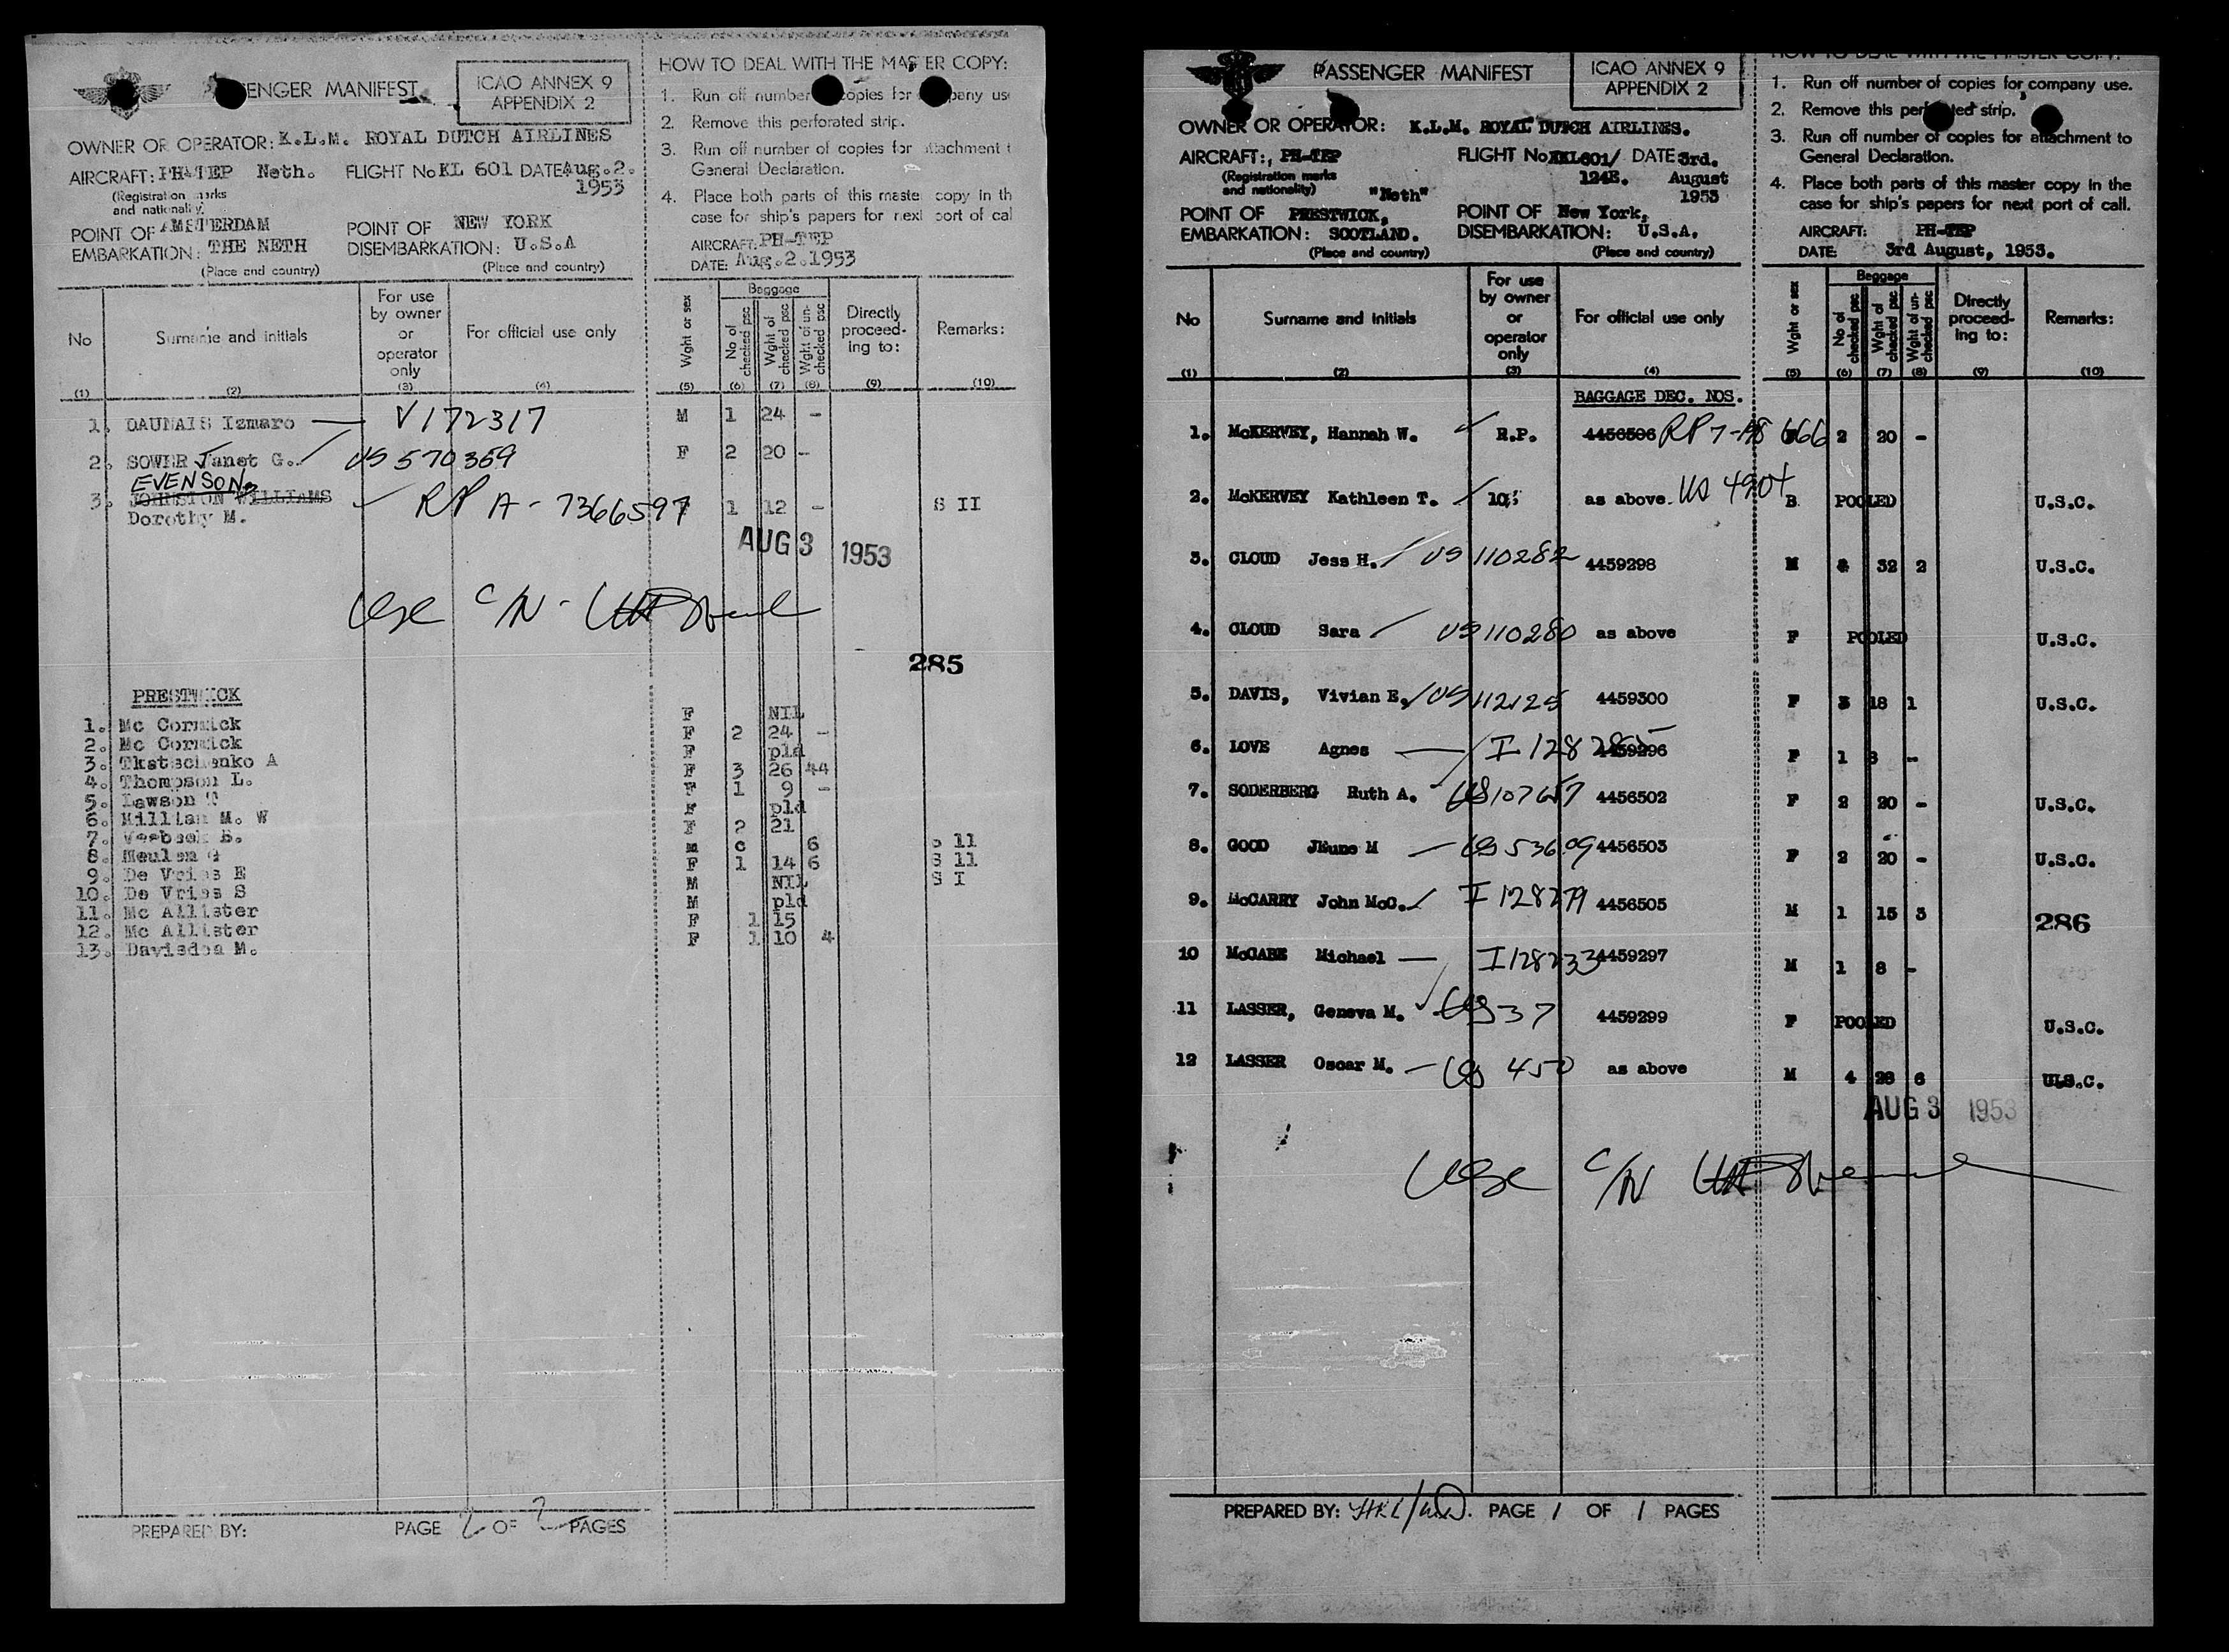 PASSENGER MANIFEST
ICAO ANNEX 9
APPENDIX 2
OWNER OR OPERATOR: K.L.M. ROYAL DUTCH AIRLINES
AIRCRAFT: PH-TEP Neth. FLIGHT No KL 601 DATE Aug.2.
1953
(Registration marks
and nationality)
POINT OF AMSTERDAM POINT OF NEW YORK
EMBARKATION: THE NETH DISEMBARKATION: U.S.A
(Place and country) (Place and country)
HOW TO DEAL WITH THE MASTER COPY:
1. Run off number copies for company use
2. Remove this perforated strip.
3. Run off number of copies for attachment t
General Declaration.
4. Place both parts of this master copy in th
case for ship's papers for next port of cal
AIRCRAFT: PH-TEP
DATE: Aug.2.1953
No Surname and initials For use by owner or operator only For official use only Wght or sex Baggage No of checked psc Wght of checked psc Wght of un-checked psc Directly proceed-ing to: Remarks:
(1) (2) (3) (4) (5) (6) (7) (8) (9) (10)
1. DAUNAIS Izmaro — V172317 M 1 24 -
2. SOWER Janet G. US 570359 F 2 20 -
EVENSON
3. JOHNSTON WILLIAMS RP A-7366597 F 1 12 - S II
Dorothy M.
AUG 3 1953
Use C/N -
285
PRESTWICK
1. Mc Cormick F NIL
2. Mc Cormick F 2 24 -
3. Tkatschenko A F pld
4. Thompson L. F 3 26 44
5. Lawson T F 1 9 -
6. Millian M. W F pld
7. Verbeek B. F 2 21
8. Meulen G M c 6 S 11
9. De Vries E F 1 14 6 S 11
10. De Vries S M NIL S I
11. Mc Allister M pld
12. Mc Allister F 1 15
13. Davisdon M. F 1 10 4
PREPARED BY: PAGE 2 OF 2 PAGES
PASSENGER MANIFEST
ICAO ANNEX 9
APPENDIX 2
OWNER OR OPERATOR: K.L.M. ROYAL DUTCH AIRLINES.
AIRCRAFT: PH-TEP FLIGHT No KL601/ DATE 3rd.
(Registration marks 124E. August
and nationality) "Neth" 1953
POINT OF PRESTWICK, POINT OF New York,
EMBARKATION: SCOTLAND. DISEMBARKATION: U.S.A.
(Place and country) (Place and country)
HOW TO DEAL WITH THE MASTER COPY:
1. Run off number of copies for company use.
2. Remove this perforated strip.
3. Run off number of copies for attachment to
General Declaration.
4. Place both parts of this master copy in the
case for ship's papers for next port of call.
AIRCRAFT: PH-TEP
DATE: 3rd August, 1953.
No Surname and initials For use by owner or operator only For official use only Wght or sex Baggage No of checked psc Wght of checked psc Wght of un-checked psc Directly proceed-ing to: Remarks:
(1) (2) (3) (4) (5) (6) (7) (8) (9) (10)
BAGGAGE DEC. NOS.
1. McKERVEY, Hannah W. R.P. 4456506 2 20 -
2. McKERVEY Kathleen T. as above. US 4904 B POOLED U.S.C.
3. CLOUD Jess H. US 110282 4459298 M 32 2 U.S.C.
4. CLOUD Sara US 110280 as above F POOLED U.S.C.
5. DAVIS, Vivian E. US 112125 4459300 F 3 18 1 U.S.C.
6. LOVE Agnes — I 128 4459296 F 1 8 -
7. SODERBERG Ruth A. US 107657 4456502 F 2 20 - U.S.C.
8. GOOD JEune M — US 53609 4456503 F 2 20 - U.S.C.
9. McCARRY John McC. I 128279 4456505 M 1 15 3
286
10 McCABE Michael — I 128233 4459297 M 1 8 -
11 LASSER, Geneva M. US 37 4459299 F POOLED U.S.C.
12 LASSER Oscar M. — US 450 as above M 4 28 6 U.S.C.
AUG 3 1953
Use C/N
PREPARED BY: PAGE 1 OF 1 PAGES